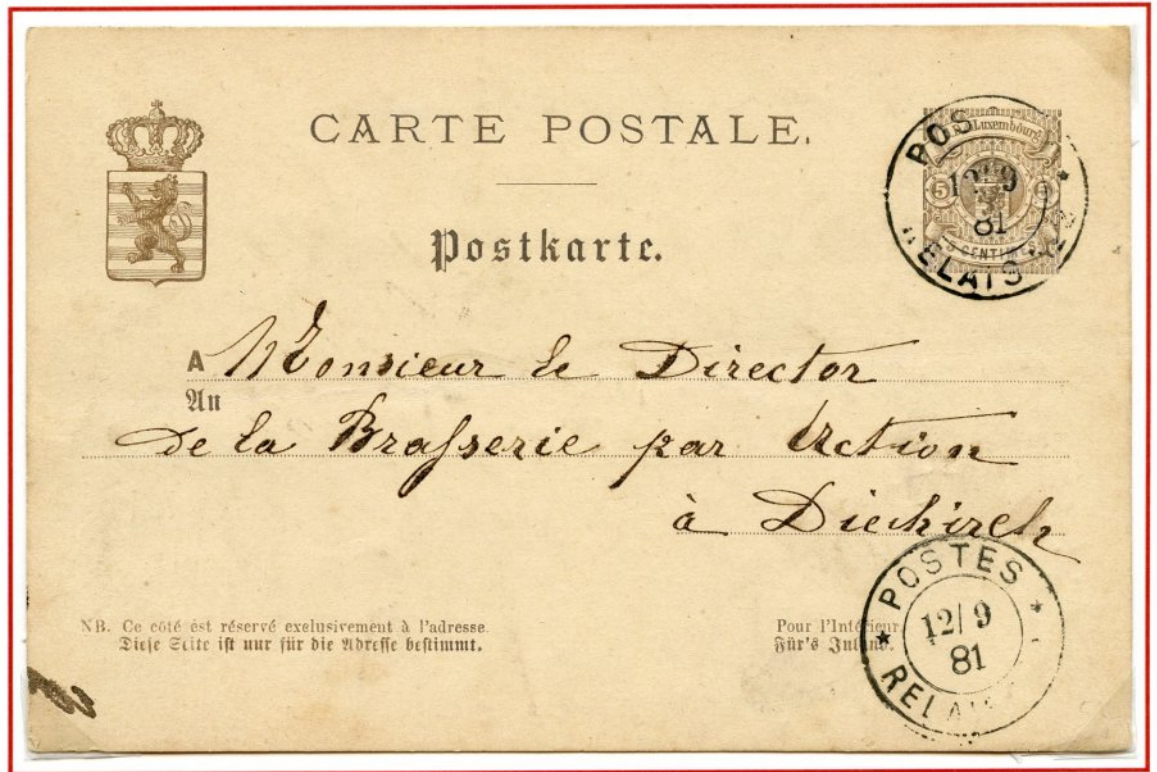 CARTE POSTALE.
Postkarte.
POS
12/9
81
ELAIS
Luxembourg
5
5 CENTIMES
A Monsieur le Director
An
De la Braſserie par Action
à Diekirch
NB. Ce côté est réservé exclusivement à l'adresse.
Dieſe Seite iſt nur für die Adreſſe beſtimmt.
Pour l'Intérieur
Für's Inland.
POSTES
12/9
81
RELAIS